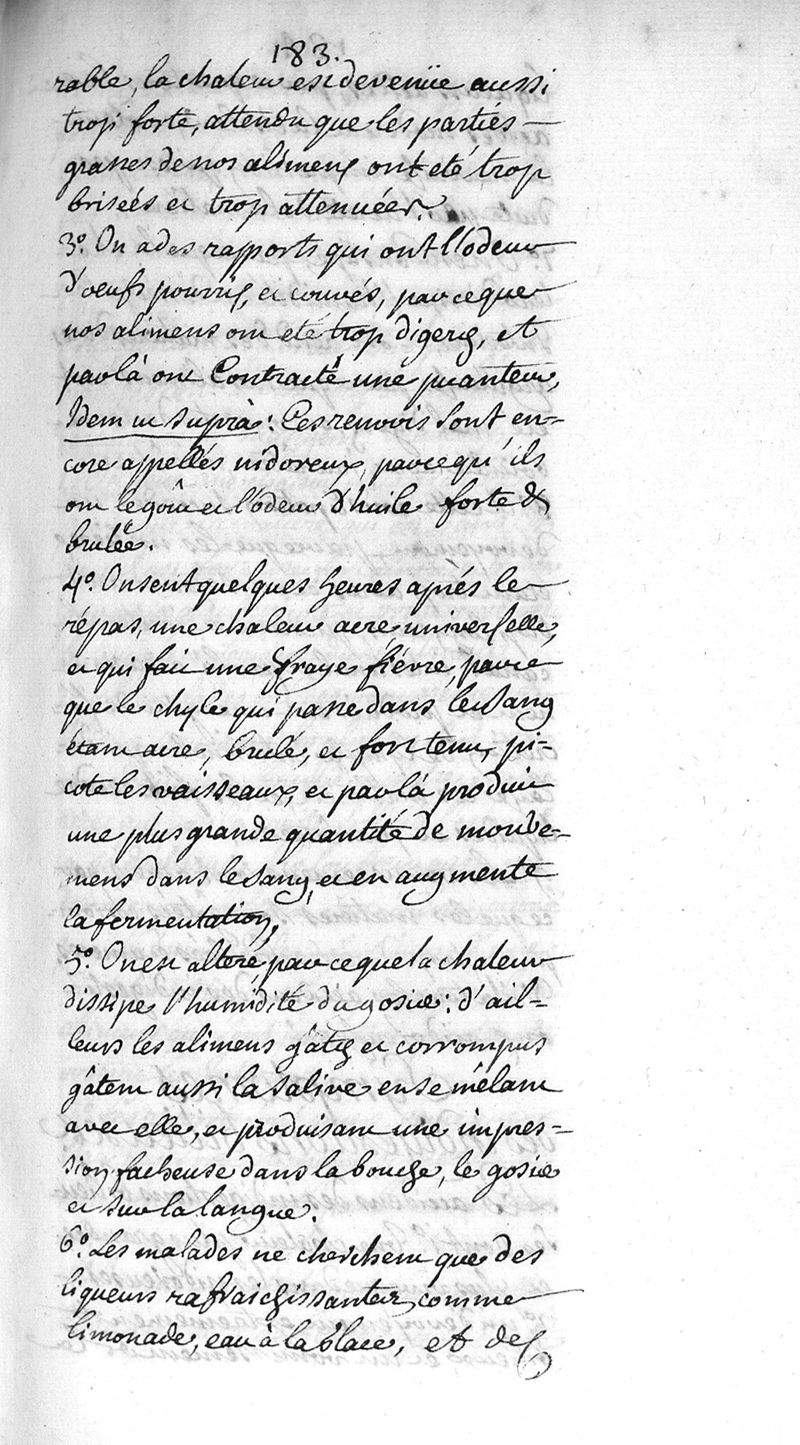 183.
rable, la chaleur est devenüe aussi
trop forte, attendu que les partiés
grasses de nos alimens ont eté trop
briseés et trop attenuées.
3.º On a des rapports qui ont l'odeur
d'oeufs pourris, et couvés, parceque
nos alimens ont eté trop digerés, et
par là ont Contracté une puanteur,
Idem ut suprà: Ces renvois sont en=
core appellés nidoreux, parcequ'ils
ont le goût et l'odeur d'huile forte &
brulée.
4.º On sent quelques heures aprés le
répas, une chaleur acre, universelle,
et qui fait une fraye fiévre, parce
que le chyle qui passe dans le sang
étant acre, brulé, et fort tenu, pi=
cote les vaisseaux, et par là produit
une plus grande quantité de mouve=
mens dans le sang, et en augmente
la fermentation.
5.º On est alteré, parceque la chaleur
dissipe l'humidité du gosier: d'ail=
leurs les alimens gâtés et corrompus
gâtent aussi la salive en se mêlant
avec elle, et produisant une impres=
sion facheuse dans la bouche, le gosier
et sur la langue.
6.º Les malades ne cherchent que des
liqueurs rafraichissantes, comme
limonade, eau à la glace, et des